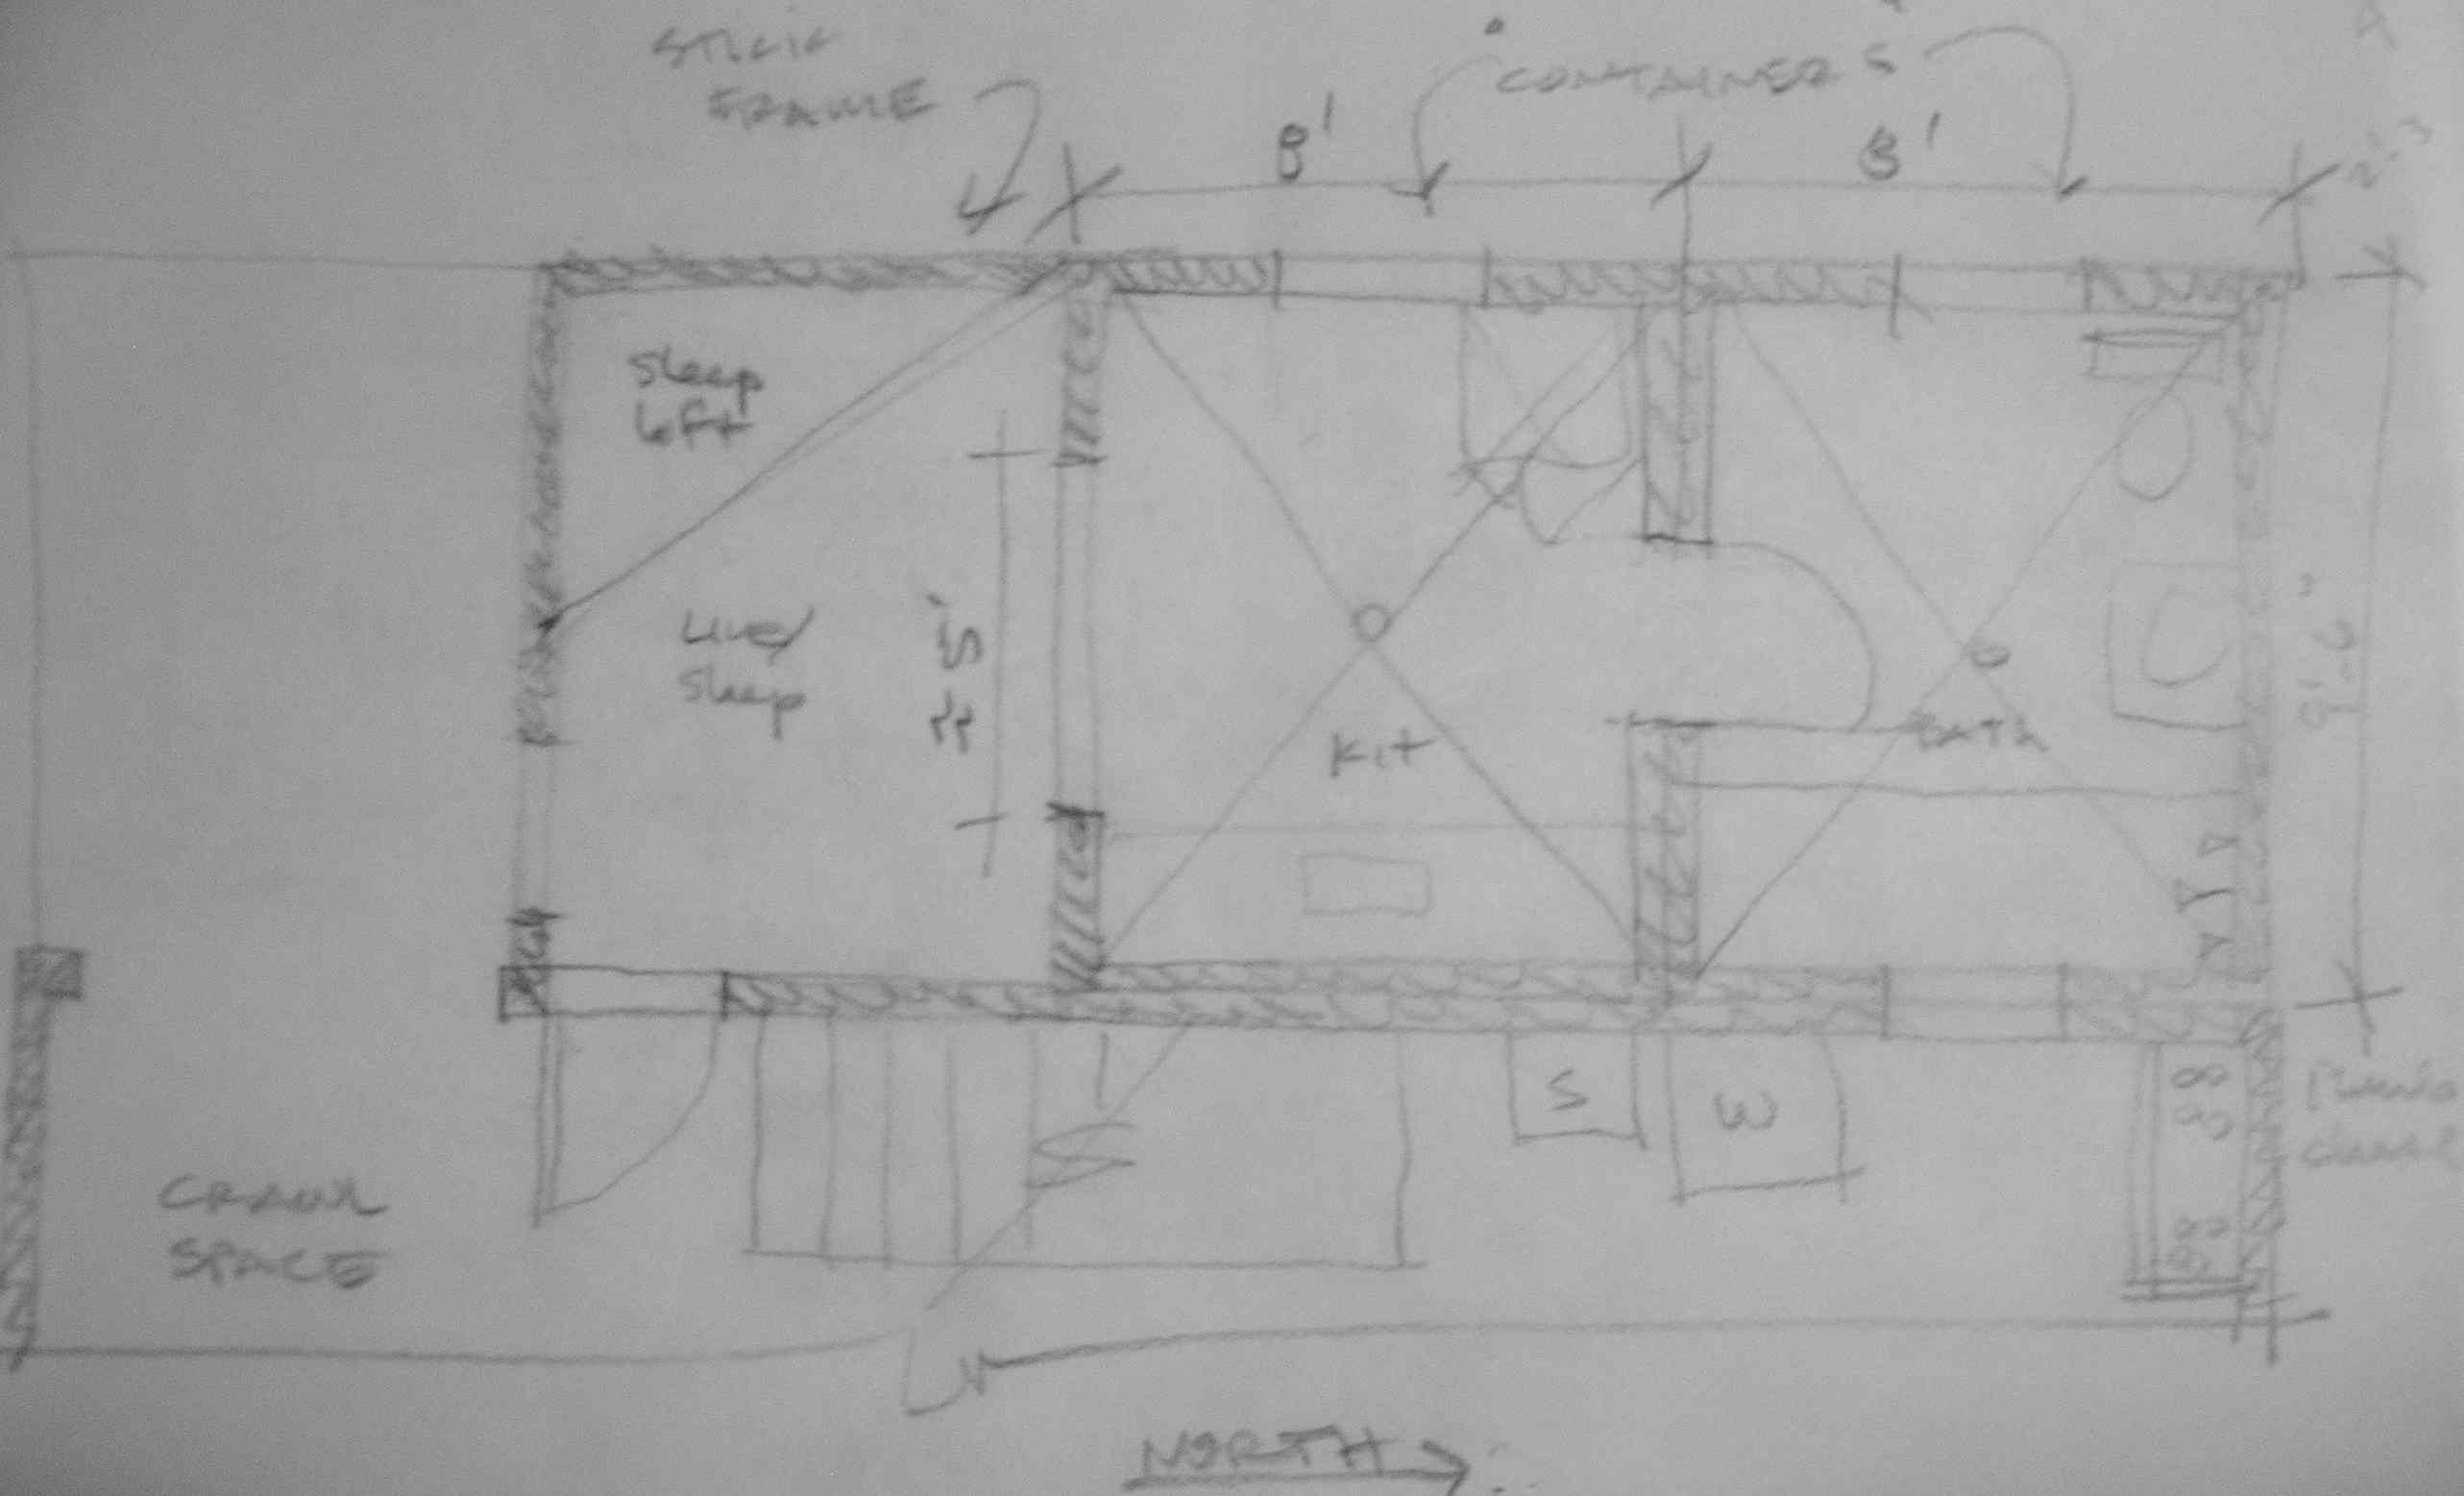 STICK
FRAME
CONTAINERS
8'
8'
Sleep
loft
Live/
Sleep
± 5'
Kit
BATH
S
W
CRAWL
SPACE
NORTH